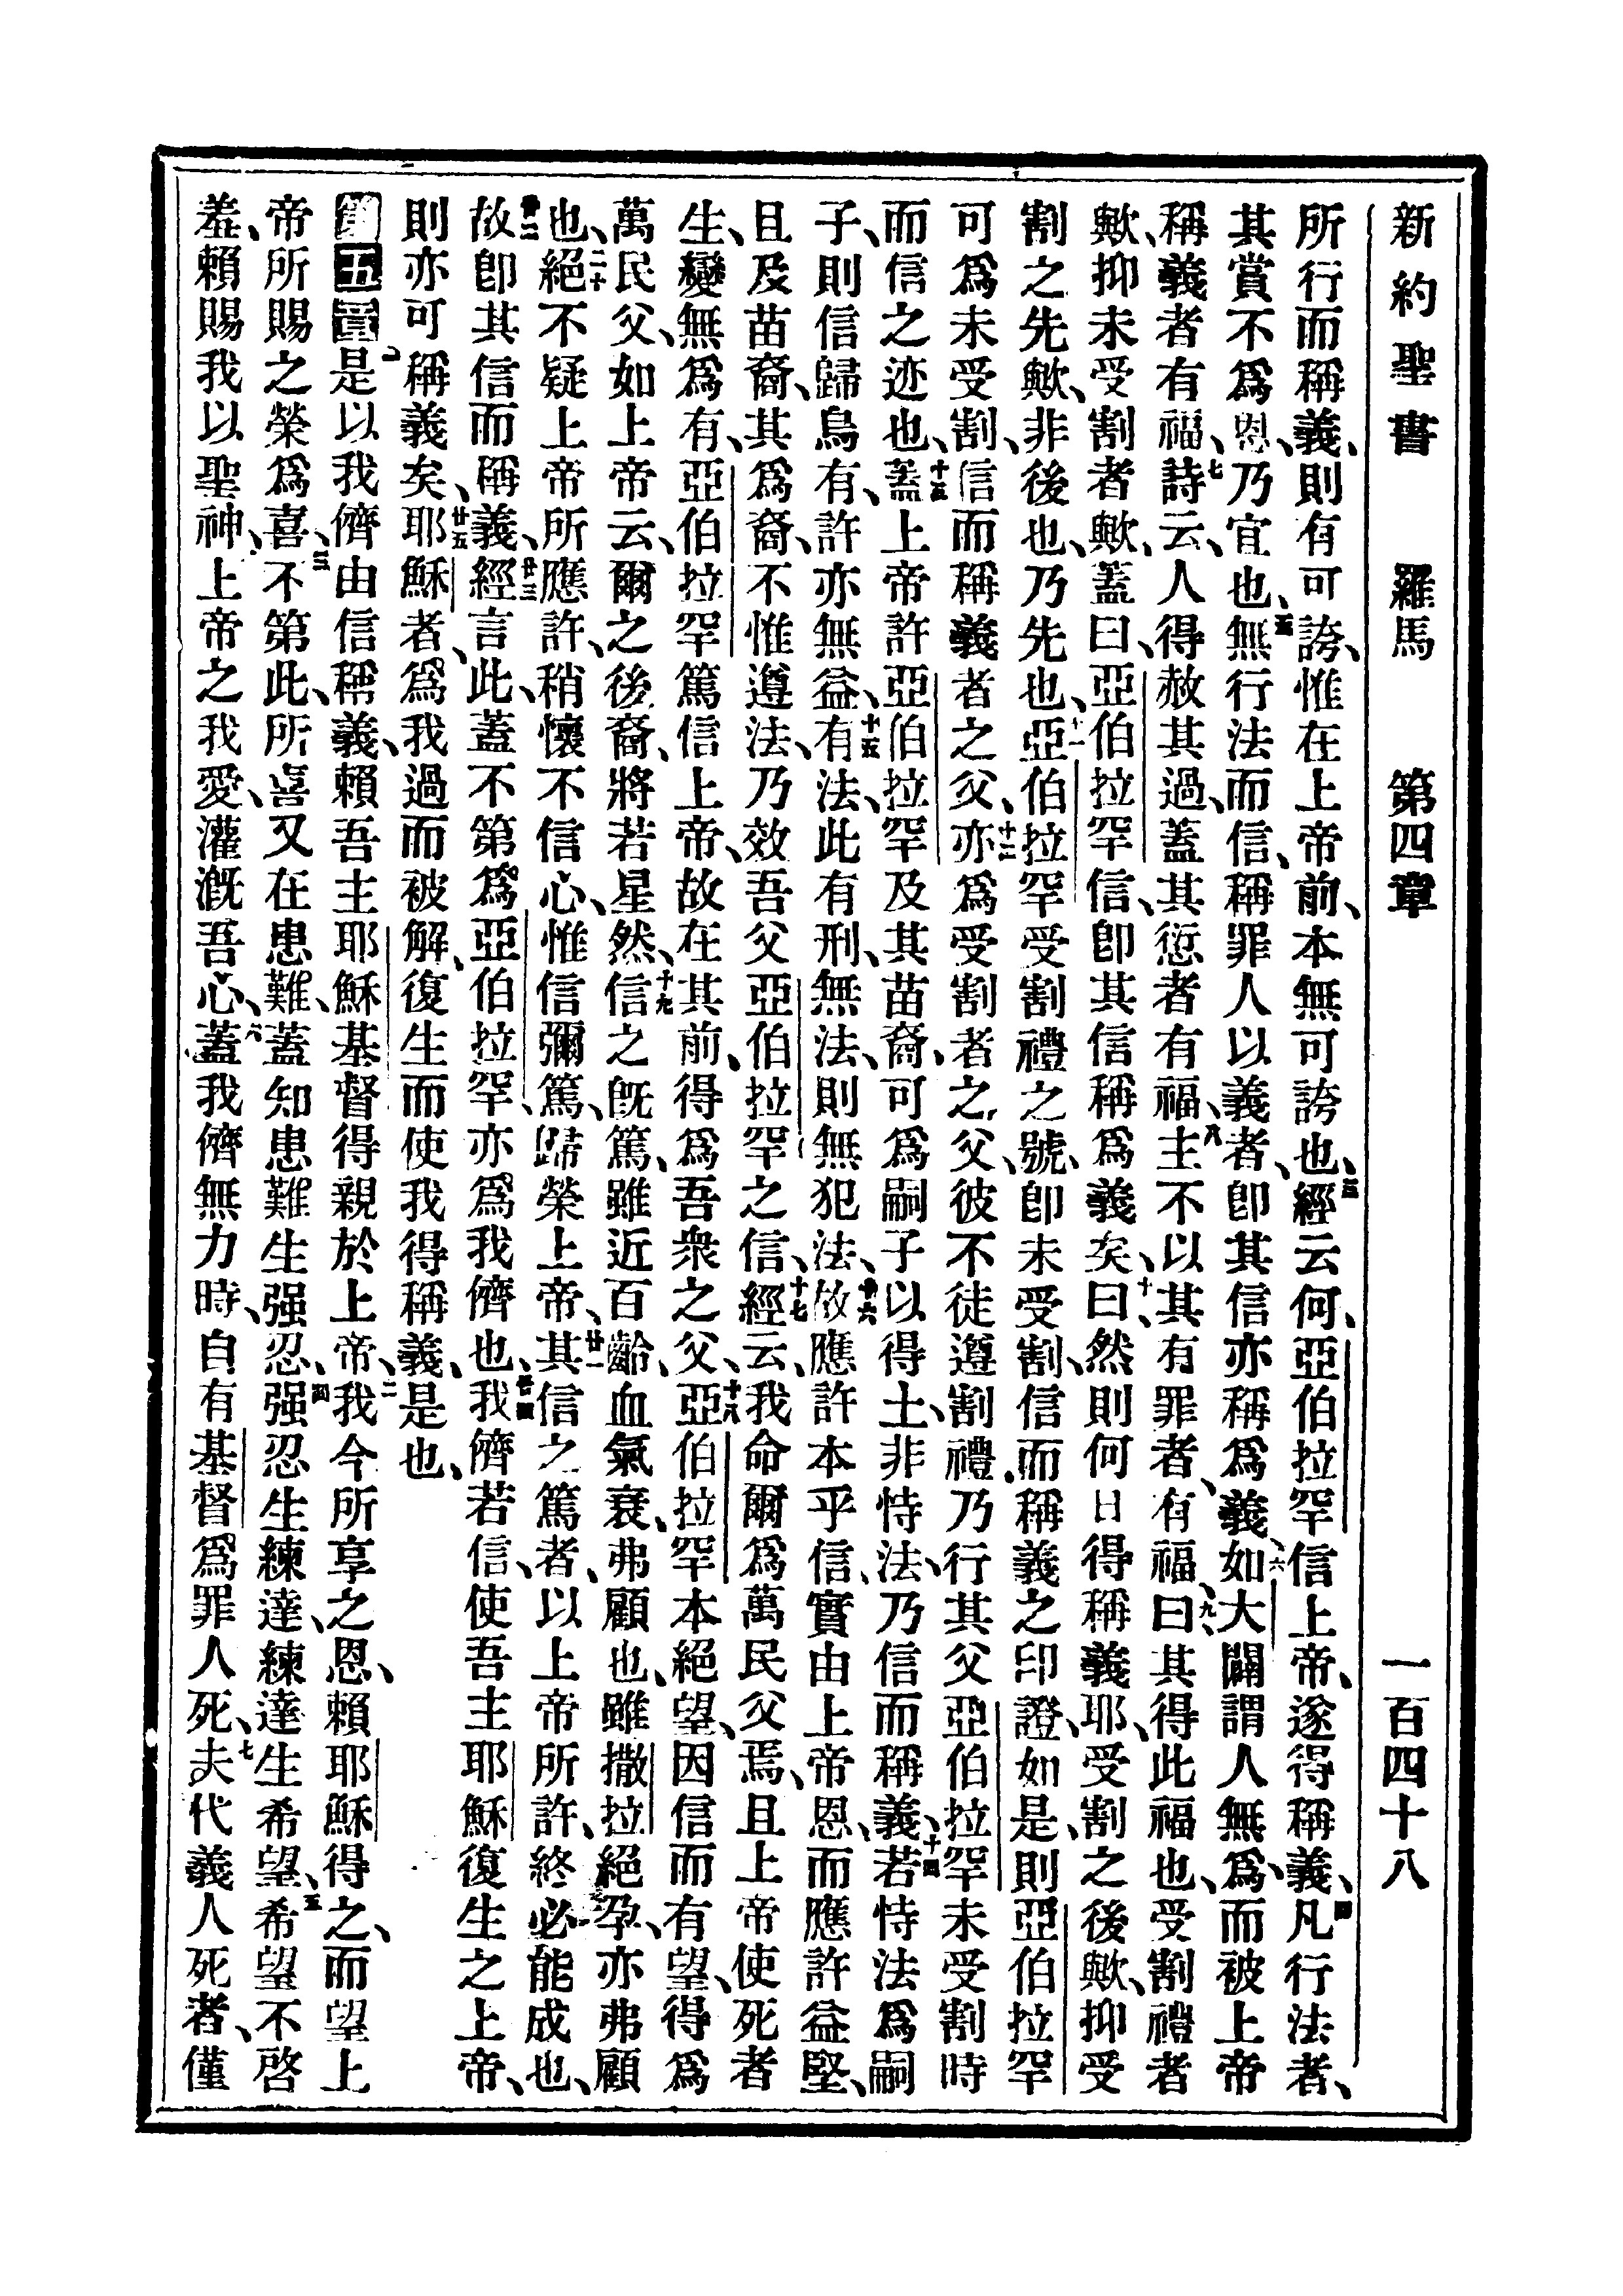 新約聖書 羅馬 第四章 一百四十八
所行而稱義、則有可誇、惟在上帝前、本無可誇也、三經云何、亞伯拉罕信上帝、遂得稱義、四凡行法者、
其賞不爲恩、乃宜也、五無行法而信、稱罪人以義者、卽其信亦稱爲義、六如大闢謂人無爲、而被上帝
稱義者有福、七詩云、人得赦其過、蓋其愆者有福、八主不以其有罪者、有福、九曰、其得此福也、受割禮者
歟、抑未受割者歟、蓋曰、亞伯拉罕信、卽其信稱爲義矣、十曰、然則何日得稱義耶、受割之後歟、抑受
割之先歟、非後也、乃先也、十一亞伯拉罕受割禮之號、卽未受割、信而稱義之印證、如是、則亞伯拉罕
可爲未受割、信而稱義者之父、十二亦爲受割者之父、彼不徒遵割禮、乃行其父亞伯拉罕未受割時
而信之迹也、十三蓋上帝許亞伯拉罕及其苗裔、可爲嗣子以得土、非恃法、乃信而稱義、十四若恃法爲嗣
子、則信歸烏有、許亦無益、十五有法、此有刑、無法、則無犯法、十六故應許本乎信、實由上帝恩、而應許益堅、
且及苗裔、其爲裔、不惟遵法、乃效吾父亞伯拉罕之信、十七經云、我命爾爲萬民父焉、且上帝使死者
生、變無爲有、亞伯拉罕篤信上帝、故在其前、得爲吾衆之父、十八亞伯拉罕本絕望、因信而有望、得爲
萬民父、如上帝云、爾之後裔、將若星然、十九信之旣篤、雖近百齡、血氣衰、弗顧也、雖撒拉絕孕、亦弗顧
也、二十絕不疑上帝所應許、稍懷不信心、惟信彌篤、歸榮上帝、廿一其信之篤者、以上帝所許、終必能成也、
廿二故卽其信而稱義、廿三經言此、蓋不第爲亞伯拉罕、亦爲我儕也、廿四我儕若信、使吾主耶穌復生之上帝、
則亦可稱義矣、廿五耶穌者、爲我過而被解、復生而使我得稱義、是也、
第五章一是以我儕由信稱義、賴吾主耶穌基督得親於上帝、二我今所享之恩、賴耶穌得之、而望上
帝所賜之榮爲喜、三不第此、所喜又在患難、蓋知患難生强忍、四强忍生練達、練達生希望、五希望不啓
羞、賴賜我以聖神、上帝之我愛、灌溉吾心、六蓋我儕無力時、自有基督爲罪人死、七夫代義人死者、僅